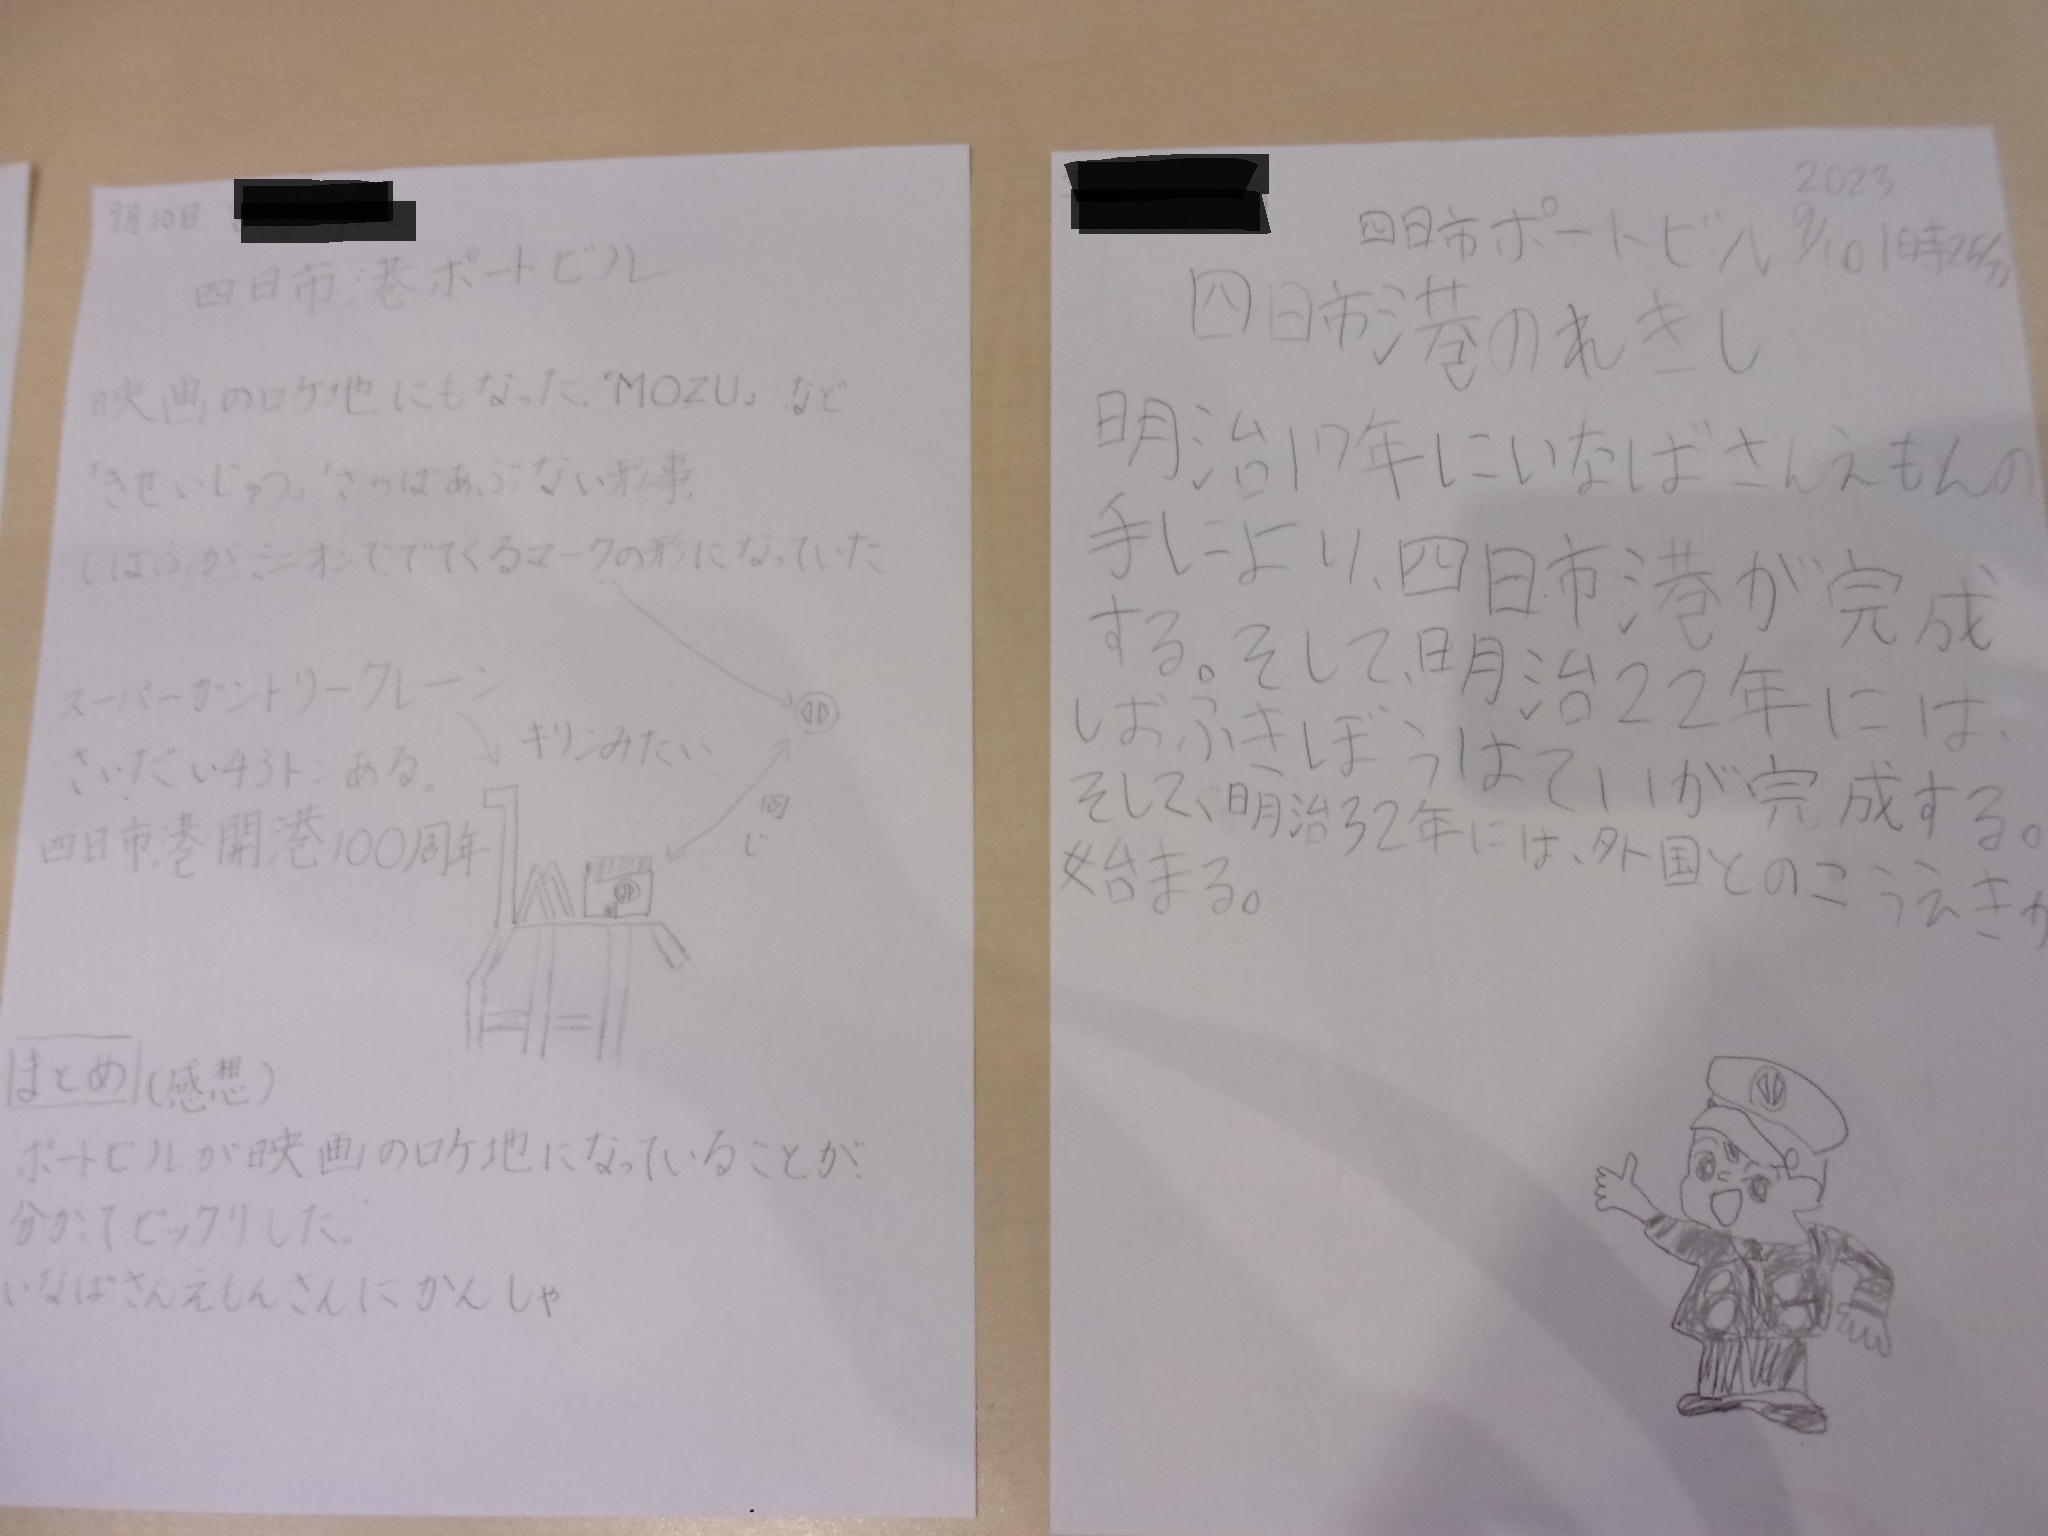 9月10日
四日市港ポートビル
映画のロケ地にもなった。「MOZU」など
「きせいじゅう」「さらばあぶない形事
しばふがミニオンででてくるマークの形になっていた
スーパーガントリークレーン
キリンみたい
さいだい43トンある。
同じ
四日市港開港100周年
まとめ(感想)
ポートビルが映画のロケ地になっていることが
分かってビックリした。
いなばさんえもんさんにかんしゃ
2023
四日市ポートビル 9/10 1時
四日市港のれきし
明治17年にいなばさんえもんの
手により、四日市港が完成
する。そして、明治22年には、
しおふきぼうはていが完成する。
そして、明治32年には、外国とのこうえきが
始まる。